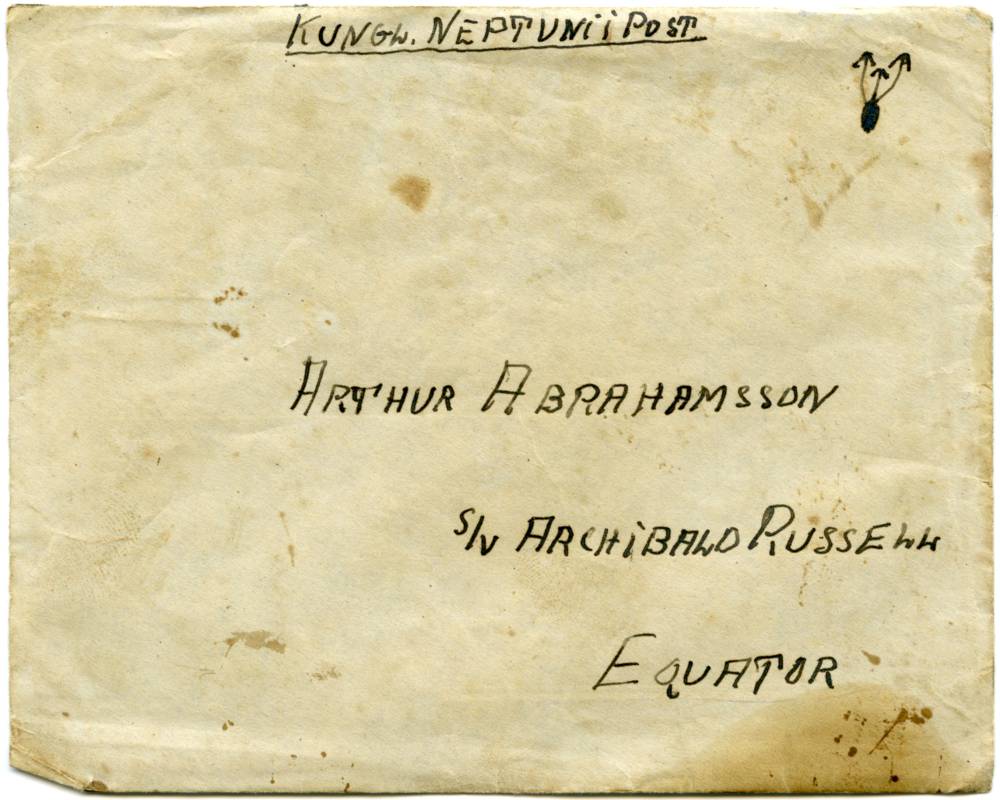 KUNGL. NEPTUNII POST
ARTHUR ABRAHAMSSON
S/V ARCHIBALD RUSSELL
EQUATOR